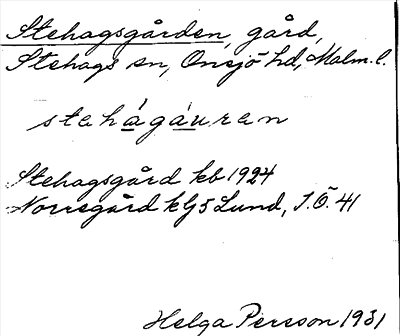 Stehagsgården, gård,
Stehags sn, Onsjö hd, Malm. l.
stehágáuren
Stehagsgård kb 1924
Norregård klj 5 Lund, I.Ö. 41
Helga Persson 1931